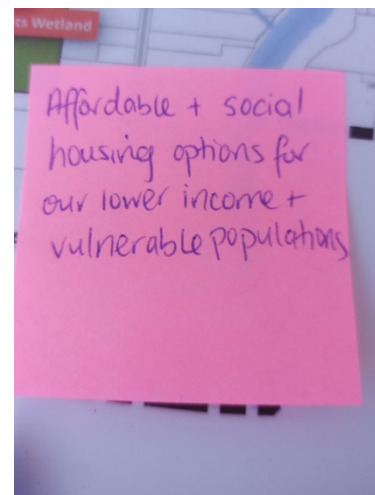 ts Wetland
Affordable + social
housing options for
our lower income +
vulnerable populations